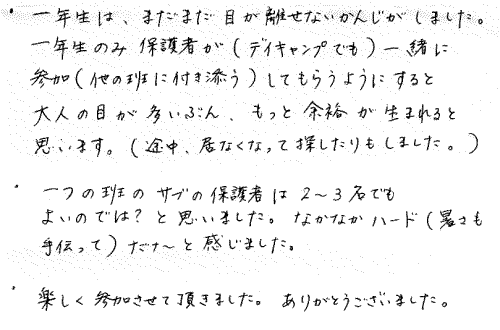 ・一年生は、まだまだ目が離せないかんじがしました。
一年生のみ保護者が(デイキャンプでも)一緒に
参加(他の班に付き添う)してもらうようにすると
大人の目が多いぶん、もっと余裕が生まれると
思います。(途中、居なくなって探したりもしました。)
・一つの班のサブの保護者は2〜3名でも
よいのでは?と思いました。なかなかハード(暑さも
手伝って)だナ〜と感じました。
・楽しく参加させて頂きました。ありがとうございました。